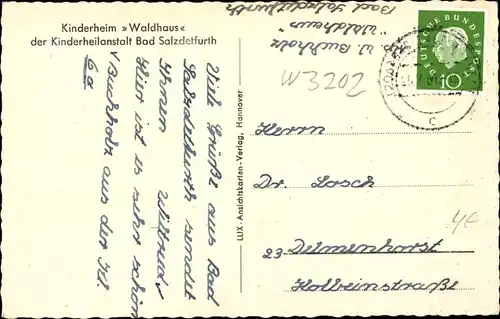 Kinderheim »Waldhaus«
der Kinderheilanstalt Bad Salzdetfurth
Viele Grüße aus Bad
Salzdetfurth sendet
Ihnen Wiltrud
Hier ist es sehr schön
Buchholz aus der Kl.
6a
LUX-Ansichtskarten-Verlag, Hannover
W. Buchholz
"Waldhaus"
Bad Salzdetfurth
W 3202
DEUTSCHE BUNDESPOST
10
c
Herrn
Dr. Losch
23 Delmenhorst
Holbeinstraße
4€